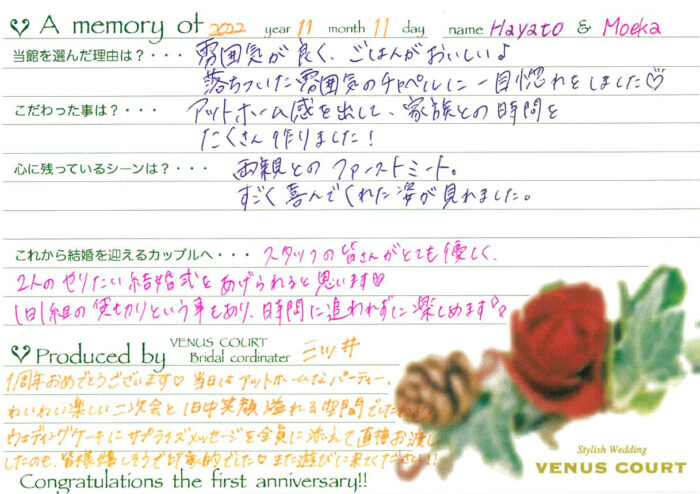 A memory of 2022 year 11 month 11 day name Hayato & Moeka
当館を選んだ理由は？・・・ 雰囲気が良く、ごはんがおいしい♪
落ちついた雰囲気のチャペルに一目惚れをしました♡
こだわった事は？・・・ アットホーム感を出して、家族との時間を
たくさん作りました！
心に残っているシーンは？・・・ 両親とのファーストミート。
すごく喜んでくれた姿が見れました。
これから結婚を迎えるカップルへ・・・ スタッフの皆さんがとても優しく、
2人のやりたい結婚式をあげられると思います♡
1日1組の貸切りという事もあり、時間に追われずに楽しめます
Produced by VENUS COURT Bridal cordinater 三ッ井
1周年おめでとうございます♡ 当日はアットホームなパーティー、
わいわい楽しい二次会と1日中笑顔溢れる空間でしたね
ウェディングケーキにサプライズメッセージを全員に添えて直接お渡し
したのも、皆様嬉しそうで印象的でした♡ また遊びに来てください!!
Congratulations the first anniversary!!
Stylish Wedding
VENUS COURT